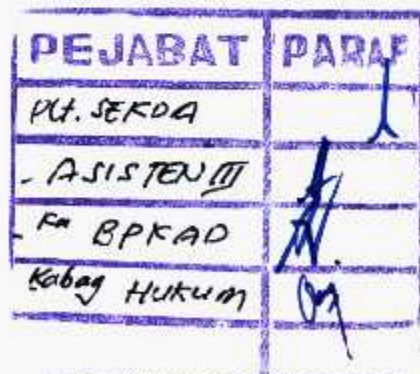 PEJABAT PARAF
Plt. SEKDA
- ASISTEN III
- Ka BPKAD
Kabag HUKUM